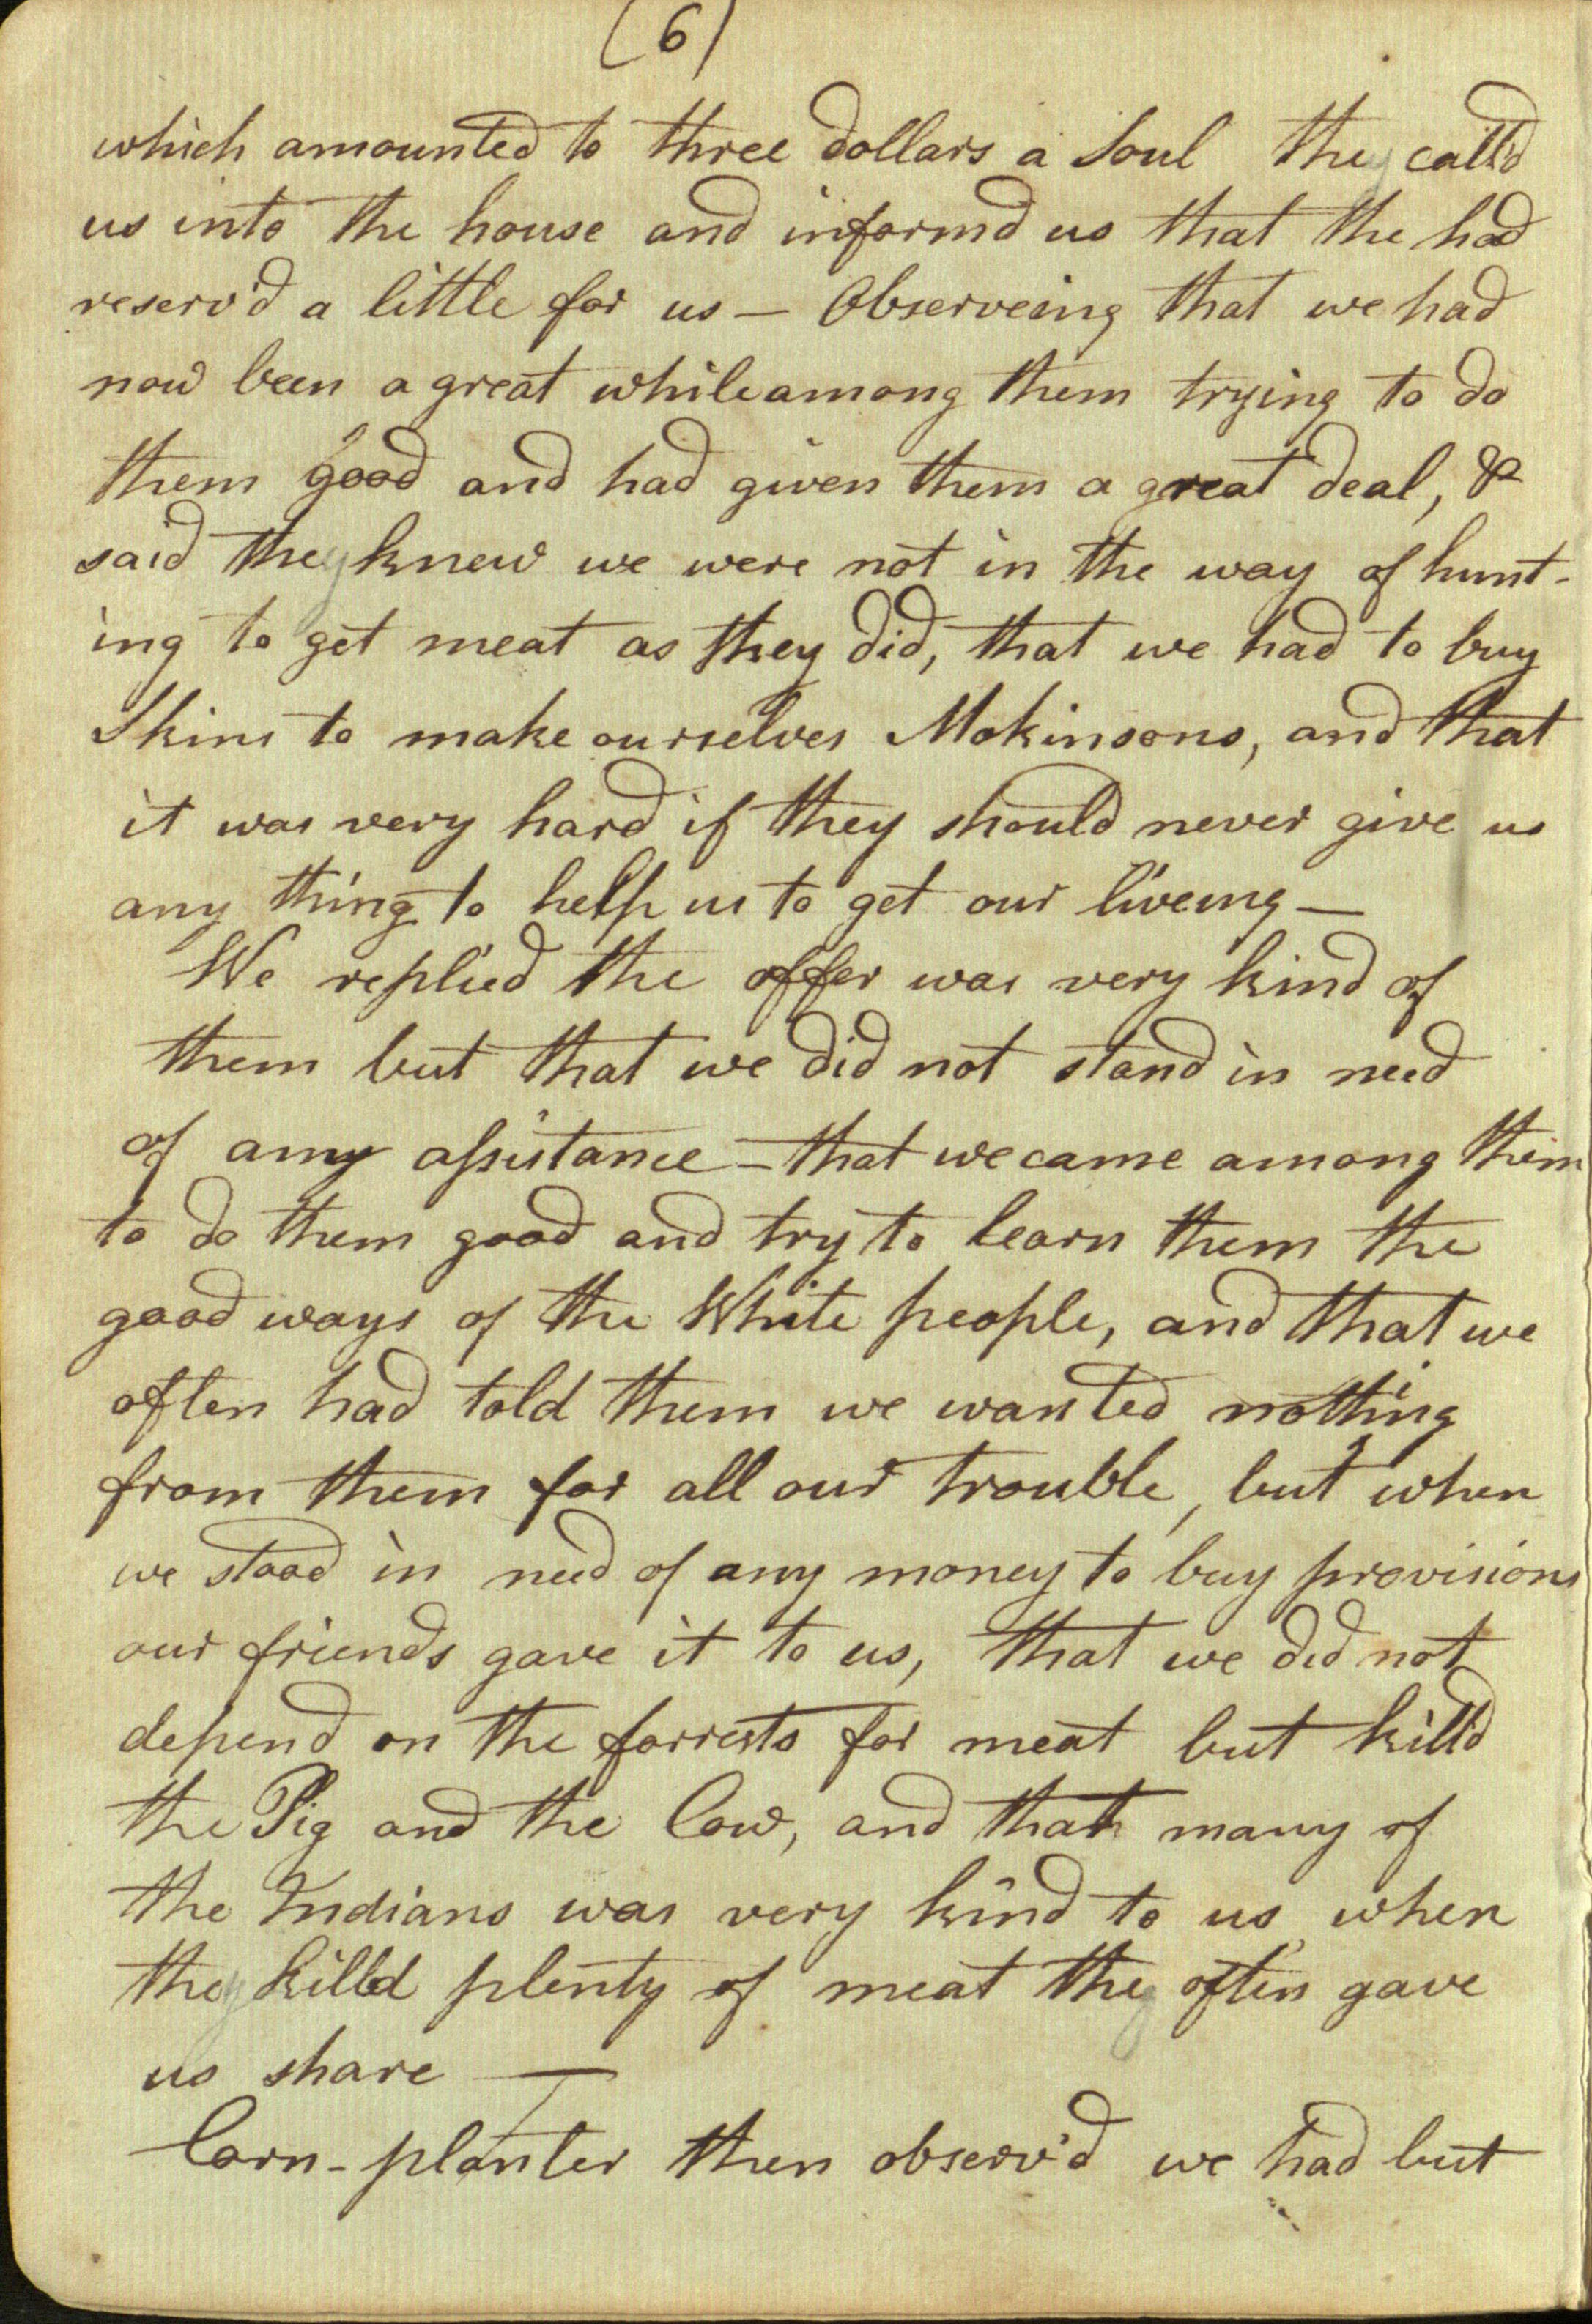 (6)
which amounted to three dollars a Soul they call'd
us into the house and inform'd us that the had
reserv'd a little for us — Observeing that we had
now been a great while among them trying to do
them good and had given them a great deal, &
said they knew we were not in the way of hunt-
ing to get meat as they did, that we had to buy
Skins to make ourselves Mokinsons, and that
it was very hard if they should never give us
any thing to help us to get our liveing —
We replied the offer was very kind of
them but that we did not stand in need
of any assistance — that we came among them
to do them good and try to learn them the
good ways of the White people, and that we
often had told them we wanted nothing
from them for all our trouble, but when
we stood in need of any money to buy provisions
our friends gave it to us, that we did not
depend on the forrests for meat but kill'd
the Pig and the Cow, and that many of
the Indians was very kind to us, when
they killd plenty of meat they often gave
us share —
Corn-planter then observ'd we had but